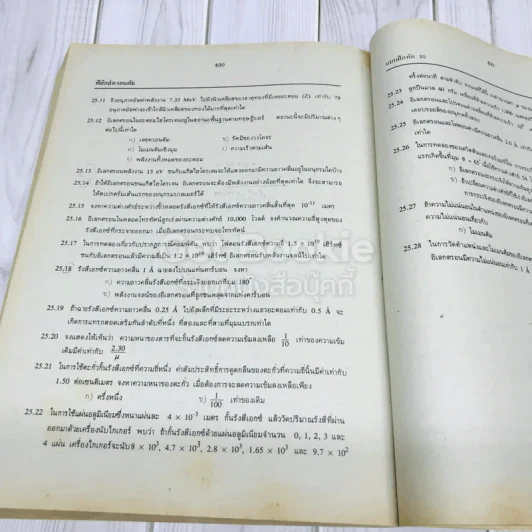 430
ฟิสิกส์ควอนตัม
25.11 ยิงอนุภาคอัลฟาพลังงาน 7.33 MeV ไปยังนิวเคลียสของธาตุทองที่มีเลขอะตอม (Z) เท่ากับ 79
อนุภาคอัลฟาจะเข้าใกล้นิวเคลียสของทองได้มากที่สุดเท่าใด
25.12 อิเลกตรอนในอะตอมไฮโดรเจนอยู่ในสถานะพื้นฐานตามทฤษฎีบอร์ สถานะนี้จะมีปริมาณต่าง ๆ
ต่อไปนี้เท่าใด
ก) เลขควอนตัม ข) รัศมีของวงโคจร
ค) โมเมนตัมเชิงมุม ง) ความเร็วตามเส้น
จ) พลังงานทั้งหมดของอะตอม
25.13 อิเลกตรอนพลังงาน 13 eV ชนกับแก๊สไฮโดรเจนจะให้แสงออกมามีความยาวคลื่นอยู่ในอนุกรมใดบ้าง
25.14 ถ้าให้อิเลกตรอนชนแก๊สไฮโดรเจน อิเลกตรอนจะต้องมีพลังงานอย่างน้อยที่สุดเท่าใด จึงจะสามารถ
ให้สเปกตรัมเส้นแรกของอนุกรมบาลเมอร์ได้
25.15 จงหาความต่างศักย์ระหว่างขั้วหลอดรังสีเอกซ์ที่ให้รังสีเอกซ์ความยาวคลื่นสั้นที่สุด 10⁻¹¹ เมตร
25.16 อิเลกตรอนในหลอดโทรทัศน์ถูกเร่งผ่านความต่างศักย์ 10,000 โวลต์ จงคำนวณความถี่สูงสุดของ
รังสีเอกซ์ที่กระจายออกมา เมื่ออิเลกตรอนกระทบจอโทรทัศน์
25.17 ในการทดลองเกี่ยวกับปรากฏการณ์คอมพ์ตัน พบว่า โฟตอนรังสีเอกซ์ความถี่ 1.5 × 10¹⁹ เฮิร์ทซ์
ชนกับอิเลกตรอนแล้วมีความถี่เป็น 1.2 × 10¹⁹ เฮิร์ทซ์ อิเลกตรอนรับพลังงานจลน์ไปเท่าใด
25.18 รังสีเอกซ์ความยาวคลื่น 1 Å ฉายลงไปบนแท่นคาร์บอน จงหา
ก) ความยาวคลื่นรังสีเอกซ์ที่กระเจิงออกมาที่มุม 180°
ข) พลังงานจลน์ของอิเลกตรอนที่ถูกชนหลุดจากแท่งคาร์บอน
25.19 ถ้าฉายรังสีเอกซ์ความยาวคลื่น 0.25 Å ไปยังผลึกที่มีระยะระหว่างแถวอะตอมเท่ากับ 0.5 Å จะ
เกิดการแทรกสอดเสริมกันลำดับที่หนึ่ง ที่สองและที่สามที่มุมแบรกเท่าใด
25.20 จงแสดงให้เห็นว่า ความหนาของสารที่จะกั้นรังสีเอกซ์ลดความเข้มลงเหลือ 1/10 เท่าของความเข้ม
เดิมมีค่าเท่ากับ 2.30/μ
25.21 ในการใช้ตะกั่วกั้นรังสีเอกซ์ที่ความถี่หนึ่ง ค่าสัมประสิทธิ์การดูดกลืนของตะกั่วที่ความถี่นั้นมีค่าเท่ากับ
1.50 ต่อเซนติเมตร จงหาความหนาของตะกั่ว เมื่อต้องการจะลดความเข้มลงเหลือเพียง
ก) ครึ่งหนึ่ง ข) 1/100 เท่าของเดิม
25.22 ในการใช้แผ่นอลูมิเนียมซึ่งหนาแผ่นละ 4 × 10⁻³ เมตร กั้นรังสีเอกซ์ แล้ววัดปริมาณรังสีที่ผ่าน
ออกมาด้วยเครื่องนับไกเกอร์ พบว่า ถ้ากั้นรังสีเอกซ์ด้วยแผ่นอลูมิเนียมจำนวน 0, 1, 2, 3 และ
4 แผ่น เครื่องไกเกอร์จะนับ 8 × 10³, 4.7 × 10³, 2.8 × 10³, 1.65 × 10³ และ 9.7 × 10²
แบบฝึกหัด 25
25.23
25.24
25.25
25.26 ในการทดลอง
25.27 ถ้าความไม่แน่นอน
ความไม่แน่นอนเกี่ยวกับ
ก) โมเมนตัม
25.28 ในการวัดตำแหน่งและโมเมนตัมของ
ร้านหนังสือบุ๊คกี้